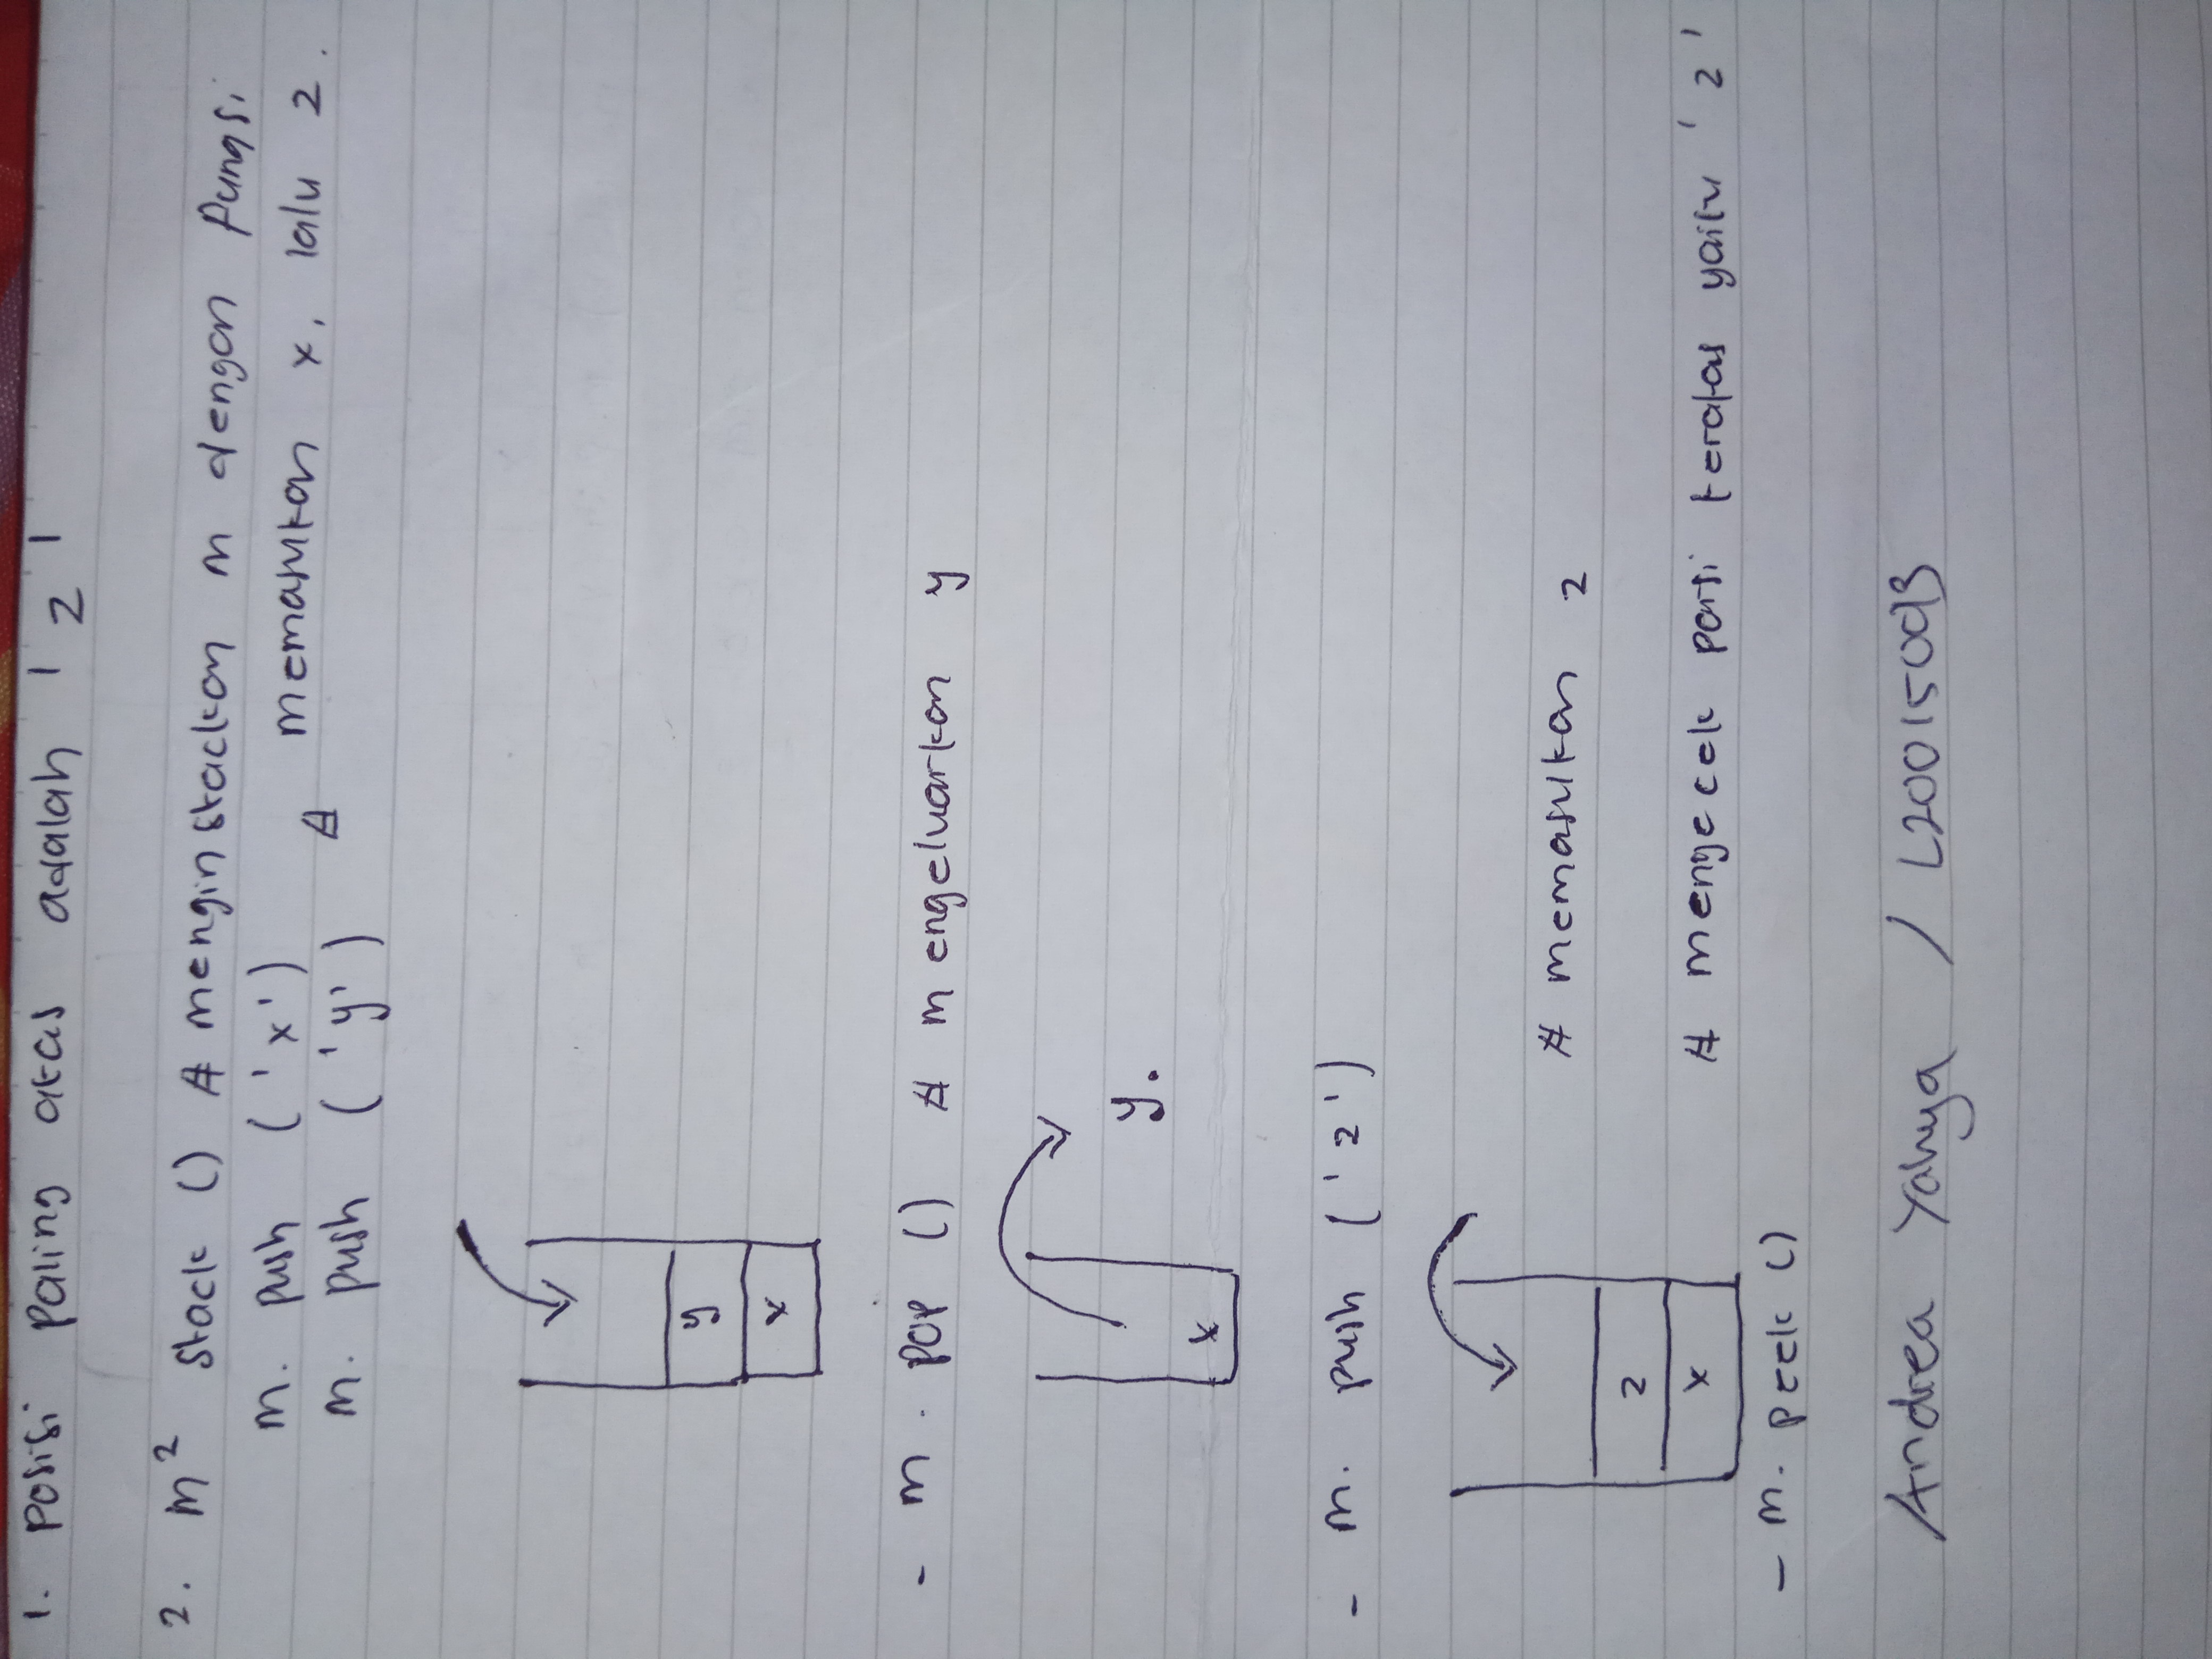 1. Posisi paling atas adalah ' z '
2. m = stack () # menginstackan m dengan fungsi
m. push ('x')
m. push ('y') # memasukkan x, lalu z.
y
x
- m. pop () # mengeluarkan y
y.
x
- m. push ('z')
# memasukkan z
z
x
# mengecek posisi teratas yaitu 'z'
- m. peek ()
Andrea Yahya /